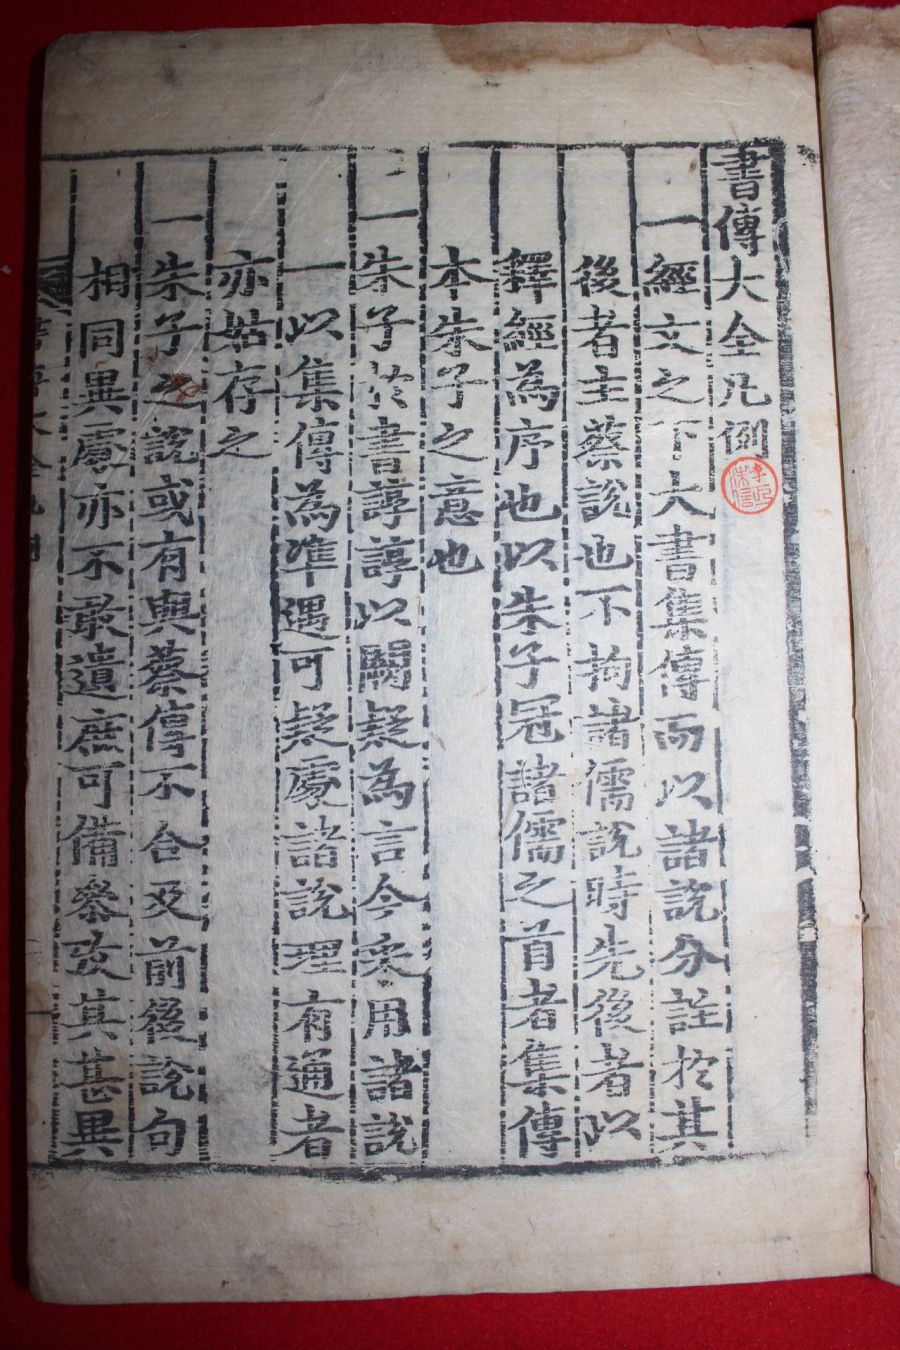 書傳大全凡例
一經文之下大書集傳而以諸說分註於其
後者主蔡說也不拘諸儒說時先後者以
釋經為序也以朱子冠諸儒之首者集傳
本朱子之意也
一朱子於書諄諄以闕疑為言今衆用諸說
一以集傳為準遇可疑處諸說理有通者
亦姑存之
一朱子之說或有與蔡傳不合及前後說句
相同異處亦不敢遺庶可備叅攷其甚異